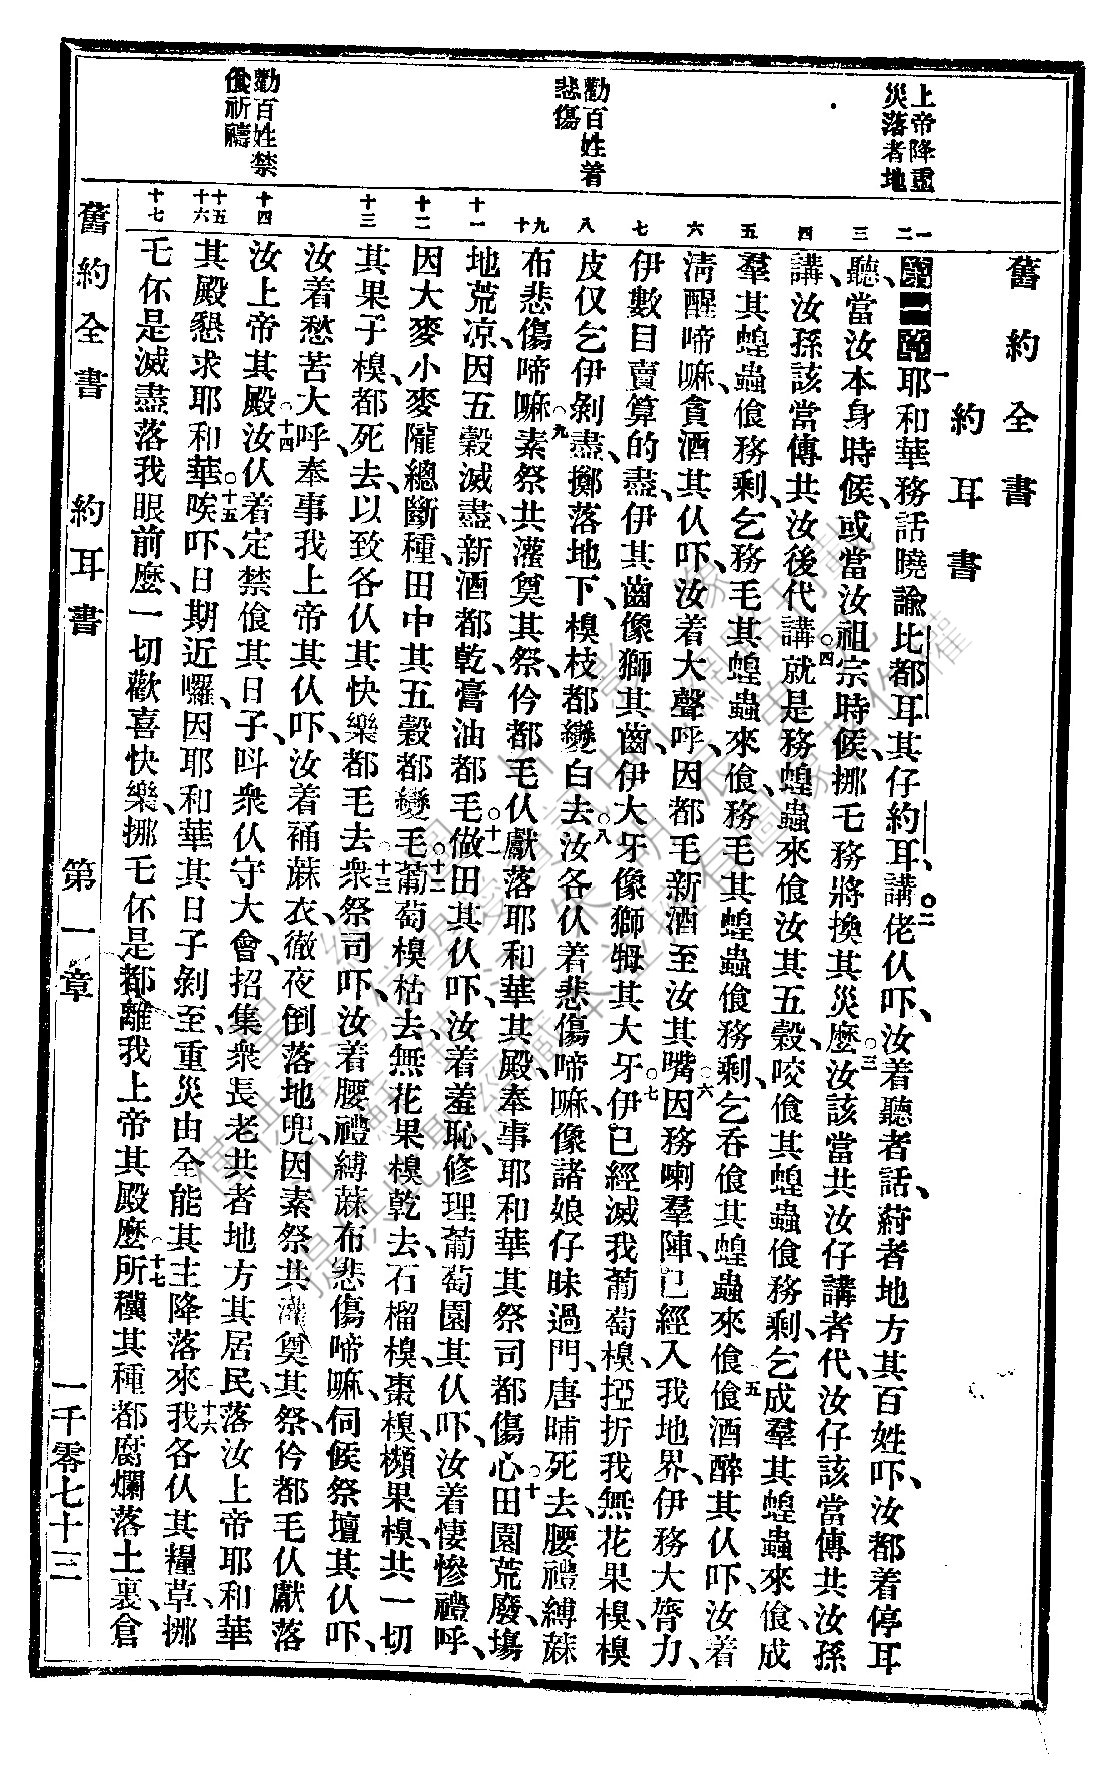 舊約全書
約耳書
上帝降重
災落者地
勸百姓着
悲傷
勸百姓禁
食祈禱
一 二 三 四 五 六 七 八 九 十 十一 十二 十三 十四 十五 十六 十七
第一章耶和華務話曉諭比都耳其仔約耳、○二講佬仈吓、汝着聽者話、蒔者地方其百姓吓、汝都着停耳
聽、當汝本身時候、或當汝祖宗時候、挪毛務將換其災麼、○三汝該當共汝仔講者代、汝仔該當傳共汝孫
講、汝孫該當傳共汝後代講、○四就是務蝗蟲來飡汝其五穀、咬飡其蝗蟲飡務剩、乞成羣其蝗蟲來飡、成
羣其蝗蟲飡務剩、乞務毛其蝗蟲來飡、務毛其蝗蟲飡務剩、乞吞飡其蝗蟲來飡、○五飡酒醉其仈吓、汝着
清醒啼嘛、貪酒其仈吓、汝着大聲呼、因都毛新酒至汝其嘴、○六因務喇羣陣、已經入我地界、伊務大膂力、
伊數目賣算的盡、伊其齒像獅其齒、伊大牙像獅牳其大牙、○七伊已經滅我葡萄槺、挜折我無花果槺、槺
皮仅乞伊剝盡、擲落地下、槺枝都變白去、○八汝各仈着悲傷啼嘛、像諸娘仔昧過門、唐晡死去、腰禮縛蔴
布悲傷啼嘛、○九素祭共灌奠其祭、伶都毛仈獻落耶和華其殿、奉事耶和華其祭司都傷心、○十田園荒廢、塲
地荒凉、因五穀滅盡、新酒都乾、膏油都毛、○十一做田其仈吓、汝着羞恥、修理葡萄園其仈吓、汝着悽慘禮呼、
因大麥小麥隴總斷種、田中其五穀都變毛、○十二葡萄槺枯去、無花果槺乾去、石榴槺、棗槺、檨果槺、共一切
其果子槺、都死去、以致各仈其快樂都毛去、○十三衆祭司吓、汝着腰禮縛蔴布悲傷啼嘛、伺候祭壇其仈吓、
汝着愁苦大呼、奉事我上帝其仈吓、汝着補蔴衣、徹夜倒落地兜、因素祭共灌奠其祭、伶都毛仈獻落
汝上帝其殿、○十四汝仈着定禁飡其日子、呌衆仈守大會、招集衆長老共者地方其居民、落汝上帝耶和華
其殿、懇求耶和華、○十五唉吓、日期近囉、因耶和華其日子剝至、重災由全能其主降落來、○十六我各仈其糧草、挪
毛伓是滅盡落我眼前麼、一切歡喜快樂、挪毛伓是都離我上帝其殿麼、○十七所穬其種都腐爛落土裏、倉
舊約全書 約耳書 第一章 一千零七十三